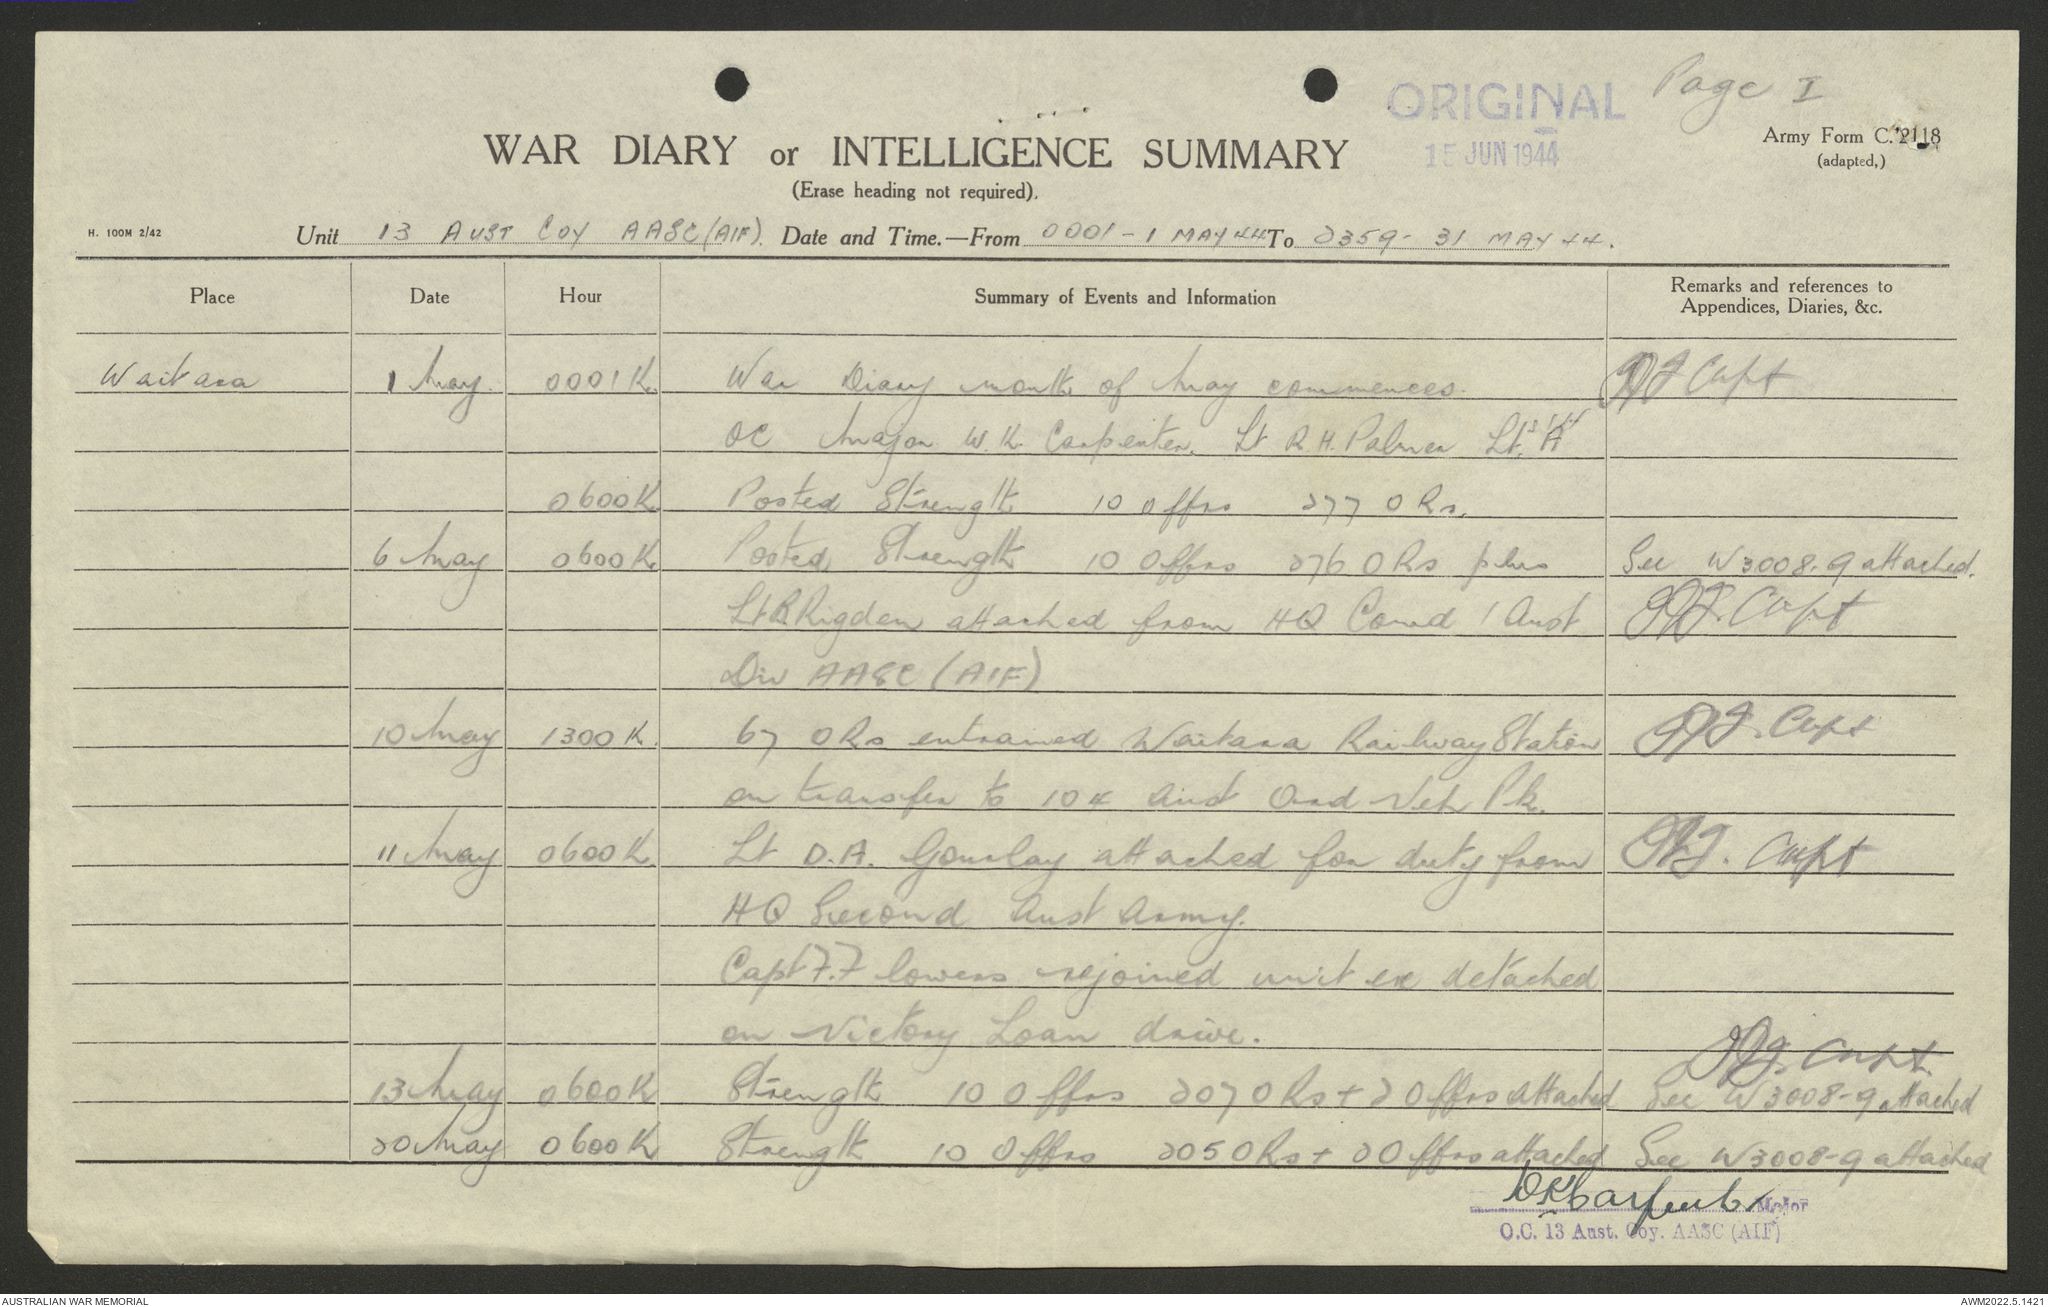 ORIGINAL
15 JUN 1944
Page I
WAR DIARY or INTELLIGENCE SUMMARY
(Erase heading not required).
Army Form C. 2118
(adapted,)
H. 100M 2/42
Unit 13 AUST COY AASC (AIF). Date and Time.—From 0001 - 1 MAY 44 To 2359 - 31 MAY 44.
Place Date Hour Summary of Events and Information Remarks and references to
Appendices, Diaries, &c.
Waitara 1 May. 0001K. War Diary month of May commences. Capt
OC Major W.K. Carpenter. Lt R.H. Palmer Lt. A
0600K. Posted Strength 10 Offrs 277 ORs.
6 May 0600K. Posted Strength 10 Offrs 276 ORs plus See W3008-9 attached.
Lt R Rigden attached from HQ Comd 1 Aust Capt
Div AASC (AIF)
10 May 1300K. 67 ORs entrained Waitara Railway Station Capt
on transfer to 104 Aust Ord Veh Pk.
11 May 0600K. Lt D.A. Gourlay attached for duty from Capt
HQ Second Aust Army.
Capt F.F lowers rejoined unit ex detached
on Victory Loan drive.
Capt.
13 May 0600K Strength 10 Offrs 207 ORs + 2 Offrs attached See W3008-9 attached
20 May 0600K Strength 10 Offrs 205 ORs + 2 Offrs attached See W3008-9 attached
WKCarpenter Major
O.C. 13 Aust. Coy. AASC (AIF)
AUSTRALIAN WAR MEMORIAL AWM2022.5.1421